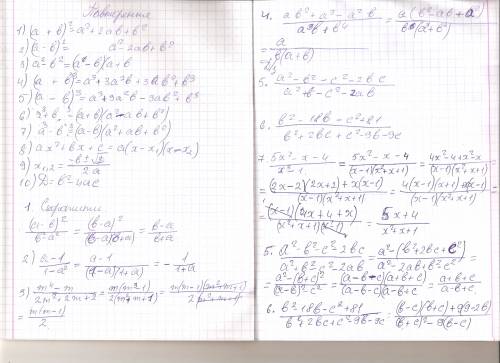 Повторення
1) (a + b)² = a² + 2ab + b²
2) (a - b)² = a² - 2ab + b²
3) a² - b² = (a - b)(a + b)
4) (a + b)³ = a³ + 3a²b + 3ab² + b³
5) (a - b)³ = a³ - 3a²b - 3ab² + b³
6) a³ + b³ = (a + b)(a² - ab + b²)
7) a³ - b³ = (a - b)(a² + ab + b²)
8) ax² + bx + c = a(x - x₁)(x - x₂)
9) x₁,₂ = (-b ± √D)/2a
10) D = b² - 4ac
1. Скоротити
(a-b)²/(b²-a²) = (b-a)²/((b-a)(b+a)) = (b-a)/(b+a)
2) (a-1)/(1-a²) = (a-1)/((1-a)(1+a)) = -1/(1+a)
= m(m-1)/2
4. (ab² + a³ - a²b)/(a³b + b⁴) = a(b² - ab + a²)/
5. (a² - b² - c² - 2bc)/(a² + b² - c² - 2ab)
6. (b² - 18b - c² + 81)/(b² + 2bc + c² - 9b - 9c)
7. (5x² - x - 4)/(x³ - 1) = (5x² - x - 4)/((x-1)(x²+x+1)) = (4x² - 4 + x² - x)/((x-1)(x²+x+1))
= ((2x-2)(2x+2) + x(x-1))/((x-1)(x²+x+1)) = (4(x-1)(x+1) + x(x-1))/((x-1)(x²+x+1)) =
= (x-1)(4x+4+x)/((x²+x+1)(x-1)) = (5x+4)/(x²+x+1)
5. (a² - b² - c² - 2bc)/(a² + b² - c² - 2ab) = (a² - (b² + 2bc + c²))/(a² - 2ab + b² - c²) =
= (a² - (b+c)²)/((a-b)² - c²) = (a-b-c)(a+b+c)/((a-b-c)(a-b+c)) = (a+b+c)/(a-b+c)
6. (b² - 18b - c² + 81)/(b² + 2bc + c² - 9b - 9c) = ((b-c)(b+c) + 9(9-2b))/((b+c)² - 9(b-c))